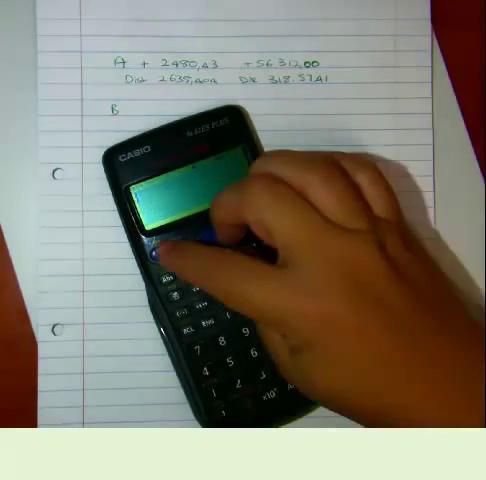 A + 2480,43 +56 312,00
Dist 2635,404 Dir 318.5741
B
CASIO
fx-82ES PLUS
Abs
RCL ENG (
7 8 9
4 5 6
1 2 3
×10ˣ A